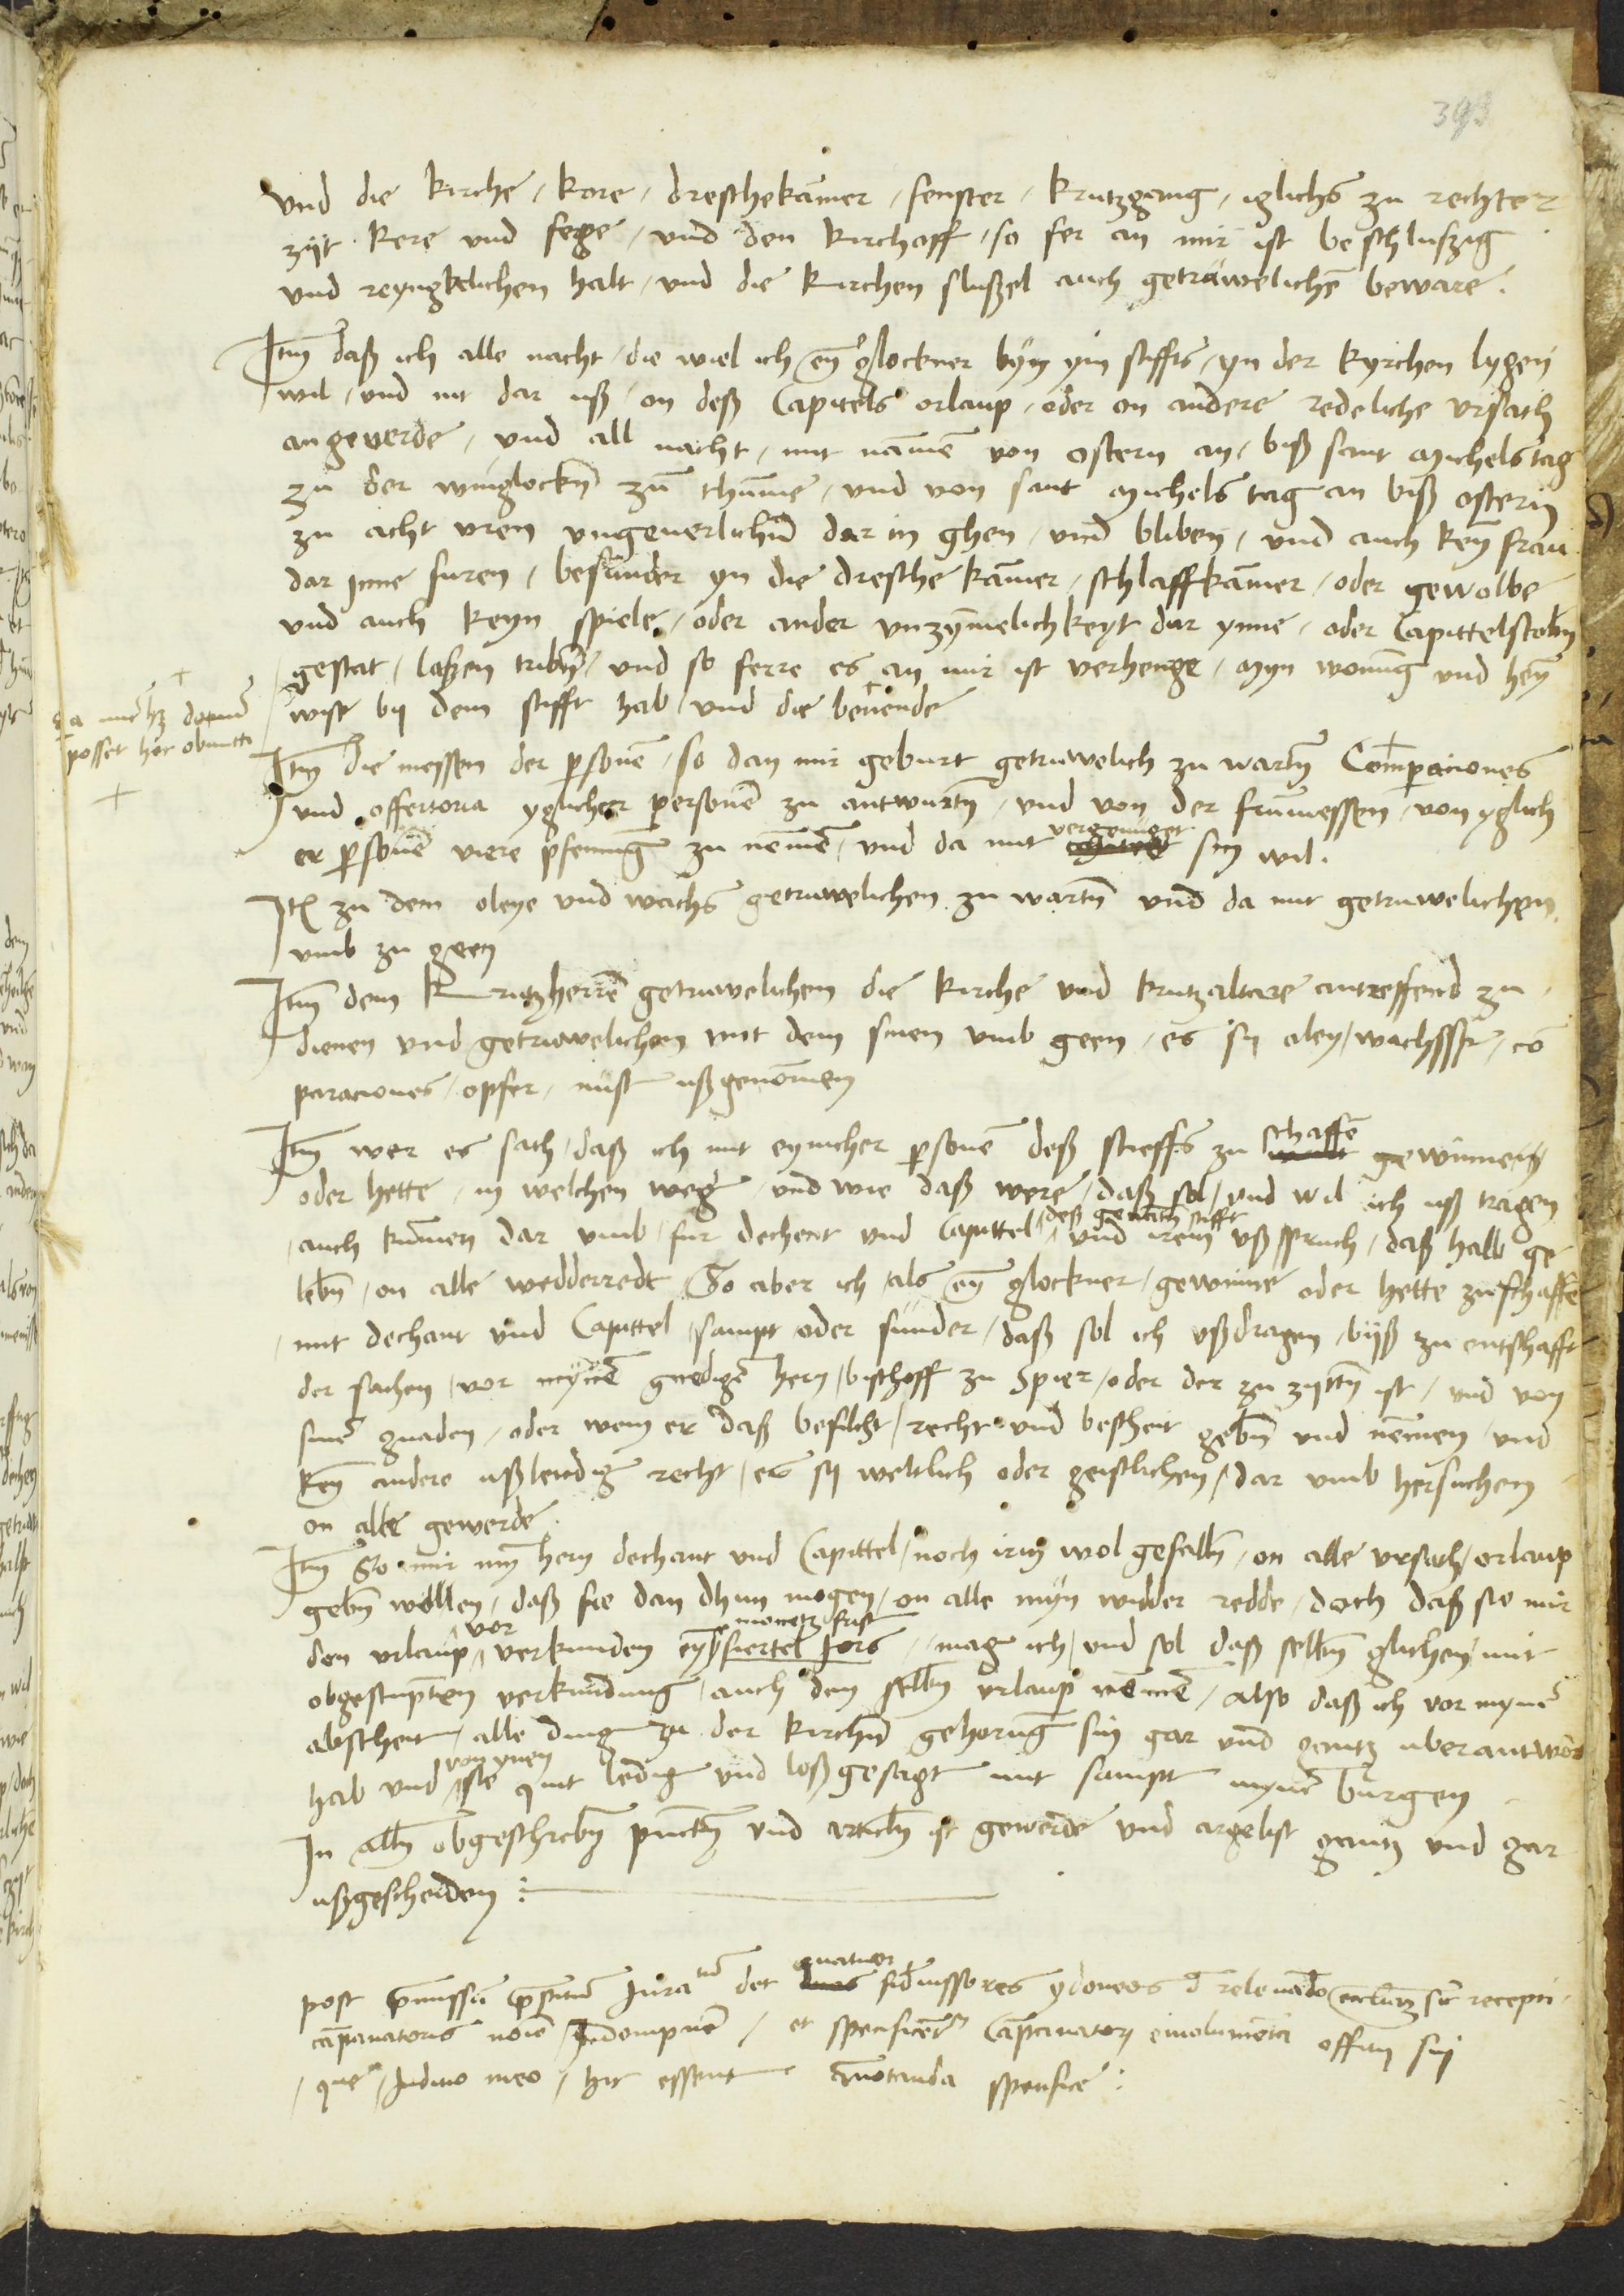 393
und die kirche / kore / dreschekamer / fenster / krutzgang / iglichs zu rechter
zijt kere und fege / und den kirchoff / so fer an mir ist beschluszig
und reyngklichen halt / und die kirchen slußel auch getruwelichē beware .
Itm̄ daß ich alle nacht / die wiel ich eyn glockner byn ym stiffts / yn der kyrchen lygen
wil / und nit dar uß / on deß Capitels orlaup / oder on andere redeliche ursach
angeverde / und all nacht / mit namē von ostern an / biß sant michels tag
zu der winglockn̄ zum thume / und von sant michels tag an biß ostern
zu acht uren ungeuerlichn̄ dar in ghen / und bliben / und auch keyn frau
dar Inne furen / besunder yn die dresche kamer / schlaffkamer / oder gewolbe
und auch keyn spiele / oder ander unzymelichkeyt dar ynne / oder Capittelstobn̄
gestat / laßen tribn̄ / und so ferre es an mir ist verhenge / myn wonūg und hey
wist by dem stifft hab / und die
posset hec
Itm̄ die messen der p̄sonē / so dan mir geburt getruwelich zu wartn̄ Comparaciones
und offertoria yglicher personē zu antwurtn̄ / und von der frumessen / von yglich
er p̄sonē viere pfennīg zu nemē / und da mit vergenuget sin wil .
Itē zu dem oleye und wachs getruwelichen zu wartn̄ und da mit getruwelichen
umb zu geen
Itm̄ dem krutzherrē getruwelichen die kirche und krutzaltare antreffend zu
dienen und getruwelichen mit dem sinen umb geen / es sy oley / wachss / cō
paraciones / opfer / nust ußgenommen
Itm̄ wer es sach / daß ich mit eynicher p̄sonē deß stieffts zu schaffē gewünne
oder hette / in welchen weg / und wie daß were / daß sol / und wil ich uß tragen
auch kumen dar umb / fur dechent und Capittel / deß gemeltn̄ stifft und irem ußspruch / daß halb ge
lebn̄ / on alle wedderredt So aber ich / als eyn glockner / gewinne oder hette zuschaffē
mit dechant und Capittel / sampt oder sunder / daß sol ich ußdragen / byß zu entschafft
der sachen / vor mynē gnedigē hern / bischoff zu Spier / oder der zu zijttn̄ ist / und von
sinē gnaden / oder wem er daß befilcht / recht und bescheit gebn̄ und nemen / und
keyn andere ußlendig recht / es sy weltlich oder geistlichen / dar umb hersuchen
on alle geverde .
Itm̄ So mir myn hern dechant und Capittel / noch irm wol gefalln̄ / on alle ursach / orlaup
gebn̄ wollen / daß sie dan dhun mogen / on alle myn widder redde / doch daß sie mir
den urlaup / vor verkunden eyn monetz frist fiertel Jors / mag ich / und sol daß selbn̄ glichen / mit
obgestimpten verkundung / auch den selbn̄ urlaup nemē / also daß ich vor mynē
abscheit / alle ding zu der kirchn̄ gehorug sin gar und gantz uberantwort
hab und von ynen sie quit ledig und loß gesagt mit sampt mynē burgen
In alln̄ obgeschrebn̄ punctn̄ und articln̄ ist geverde und argelist gantz und gar
ußgescheiden :
post p̄missū p̄stitū Jura tū det quatuor duos fideiussores ydoneos d relevādo eccliaz sic recepti
cāpanatoris noīe / Indempnē / et specificent̄ Campanatory emolumēta offitij sui
que / Iuditio meo / hic essent annotanda specifice :